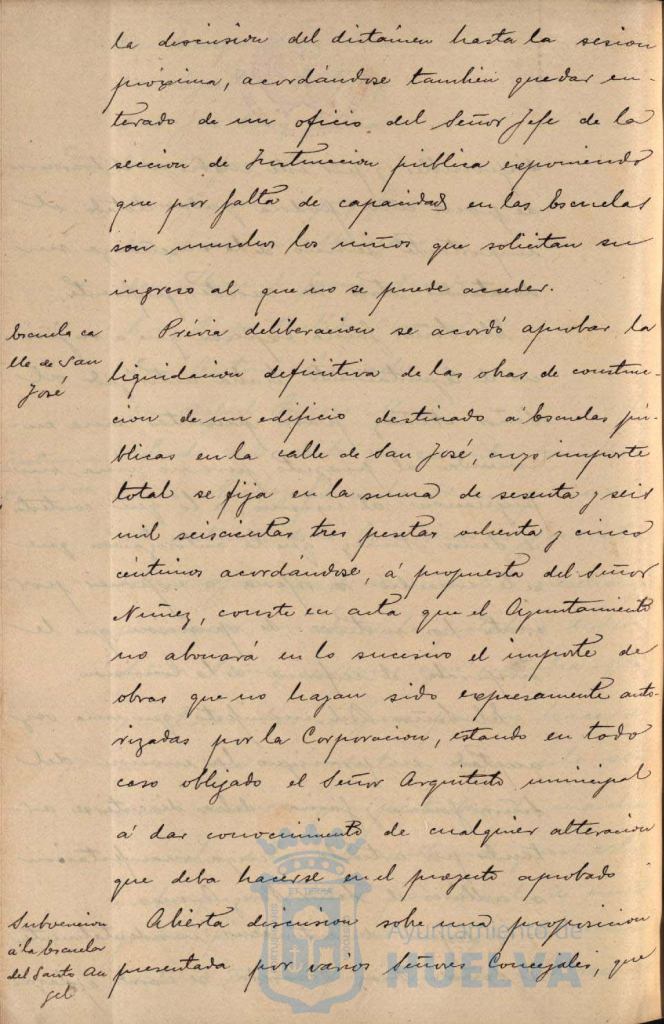 la discusion del dictámen hasta la sesion
próxima, acordándose tambien quedar en-
terado de un oficio del Señor Jefe de la
seccion de Instruccion pública exponiendo
que por falta de capacidad en las Escuelas
son muchos los niños que solicitan su
ingreso al que no se puede acceder.
Escuela ca
lle de San
José
Prévia deliberacion se acordó aprobar la
liquidacion definitiva de las obras de construc-
cion de un edificio destinado á Escuelas pú-
blicas en la calle de San José, cuyo importe
total se fija en la suma de sesenta y seis
mil seiscientas tres pesetas ochenta y cinco
céntimos acordándose, á propuesta del Señor
Nuñez, conste en acta que el Ayuntamiento
no abonará en lo sucesivo el importe de
obras que no hayan sido expresamente auto-
rizadas por la Corporacion, estando en todo
caso obligado el Señor Arquitecto municipal
á dar conocimiento de cualquier alteracion
que deba hacerse en el proyecto aprobado
Subvencion
á la Escuela
del Santo An
gel
Abierta discusion sobre una proposicion
presentada por varios Señores Concejales, que
Ayuntamiento de
HUELVA